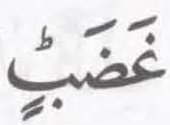 غَضَبٍؕ